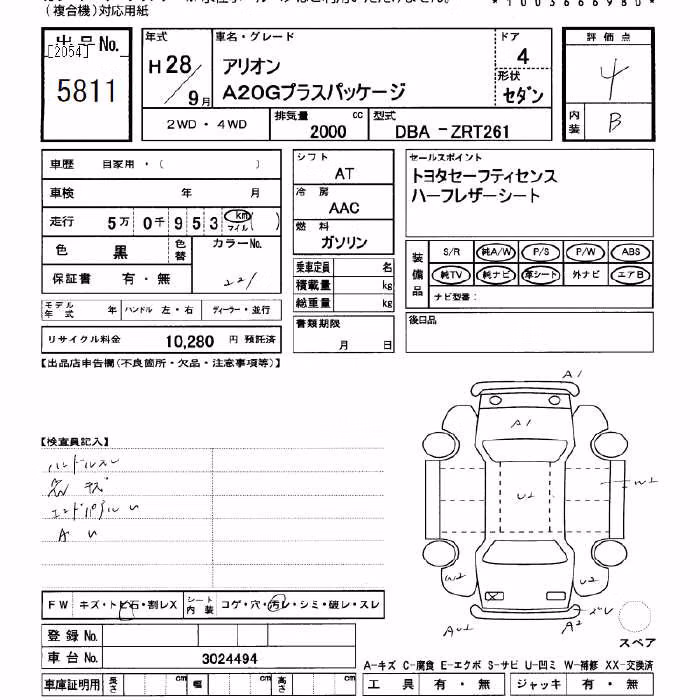 (複合機)対応用紙
*1003666980*
出品No.
[2054]
5811
年式
H28/9月
車名・グレード
アリオン
A20Gプラスパッケージ
ドア
4
形状
セダン
2WD・4WD
排気量
2000 cc
型式
DBA-ZRT261
評価点
4
内装
B
車歴 自家用・( )
車検 年 月
走行 5万0千953 km マイル( )
色 黒 色替 カラーNo. 221
保証書 有・無
モデル年式 年 ハンドル 左・右 ディーラー・並行
リサイクル料金 10,280 円 預託済
シフト
AT
冷房
AAC
燃料
ガソリン
乗車定員 名
積載量 kg
総重量 kg
書類期限
月 日
セールスポイント
トヨタセーフティセンス
ハーフレザーシート
装備品
S/R 純A/W P/S P/W ABS
純TV 純ナビ 革シート 外ナビ エアB
ナビ型番:
後日品
【出品店申告欄(不良箇所・欠品・注意事項等)】
【検査員記入】
ハンドルスレ
A1
A1
U1
W1
W2
U2
AU1
A2
ズレ
スペア
FW キズ・トビ石・割レX シート内装 コゲ・穴・汚レ・シミ・破レ・スレ
登録No.
車台No. 3024494
車庫証明用 長さ cm 幅 cm 高さ cm
A-キズ C-腐食 E-エクボ S-サビ U-凹ミ W-補修 XX-交換済
工具 有・無 ジャッキ 有・無